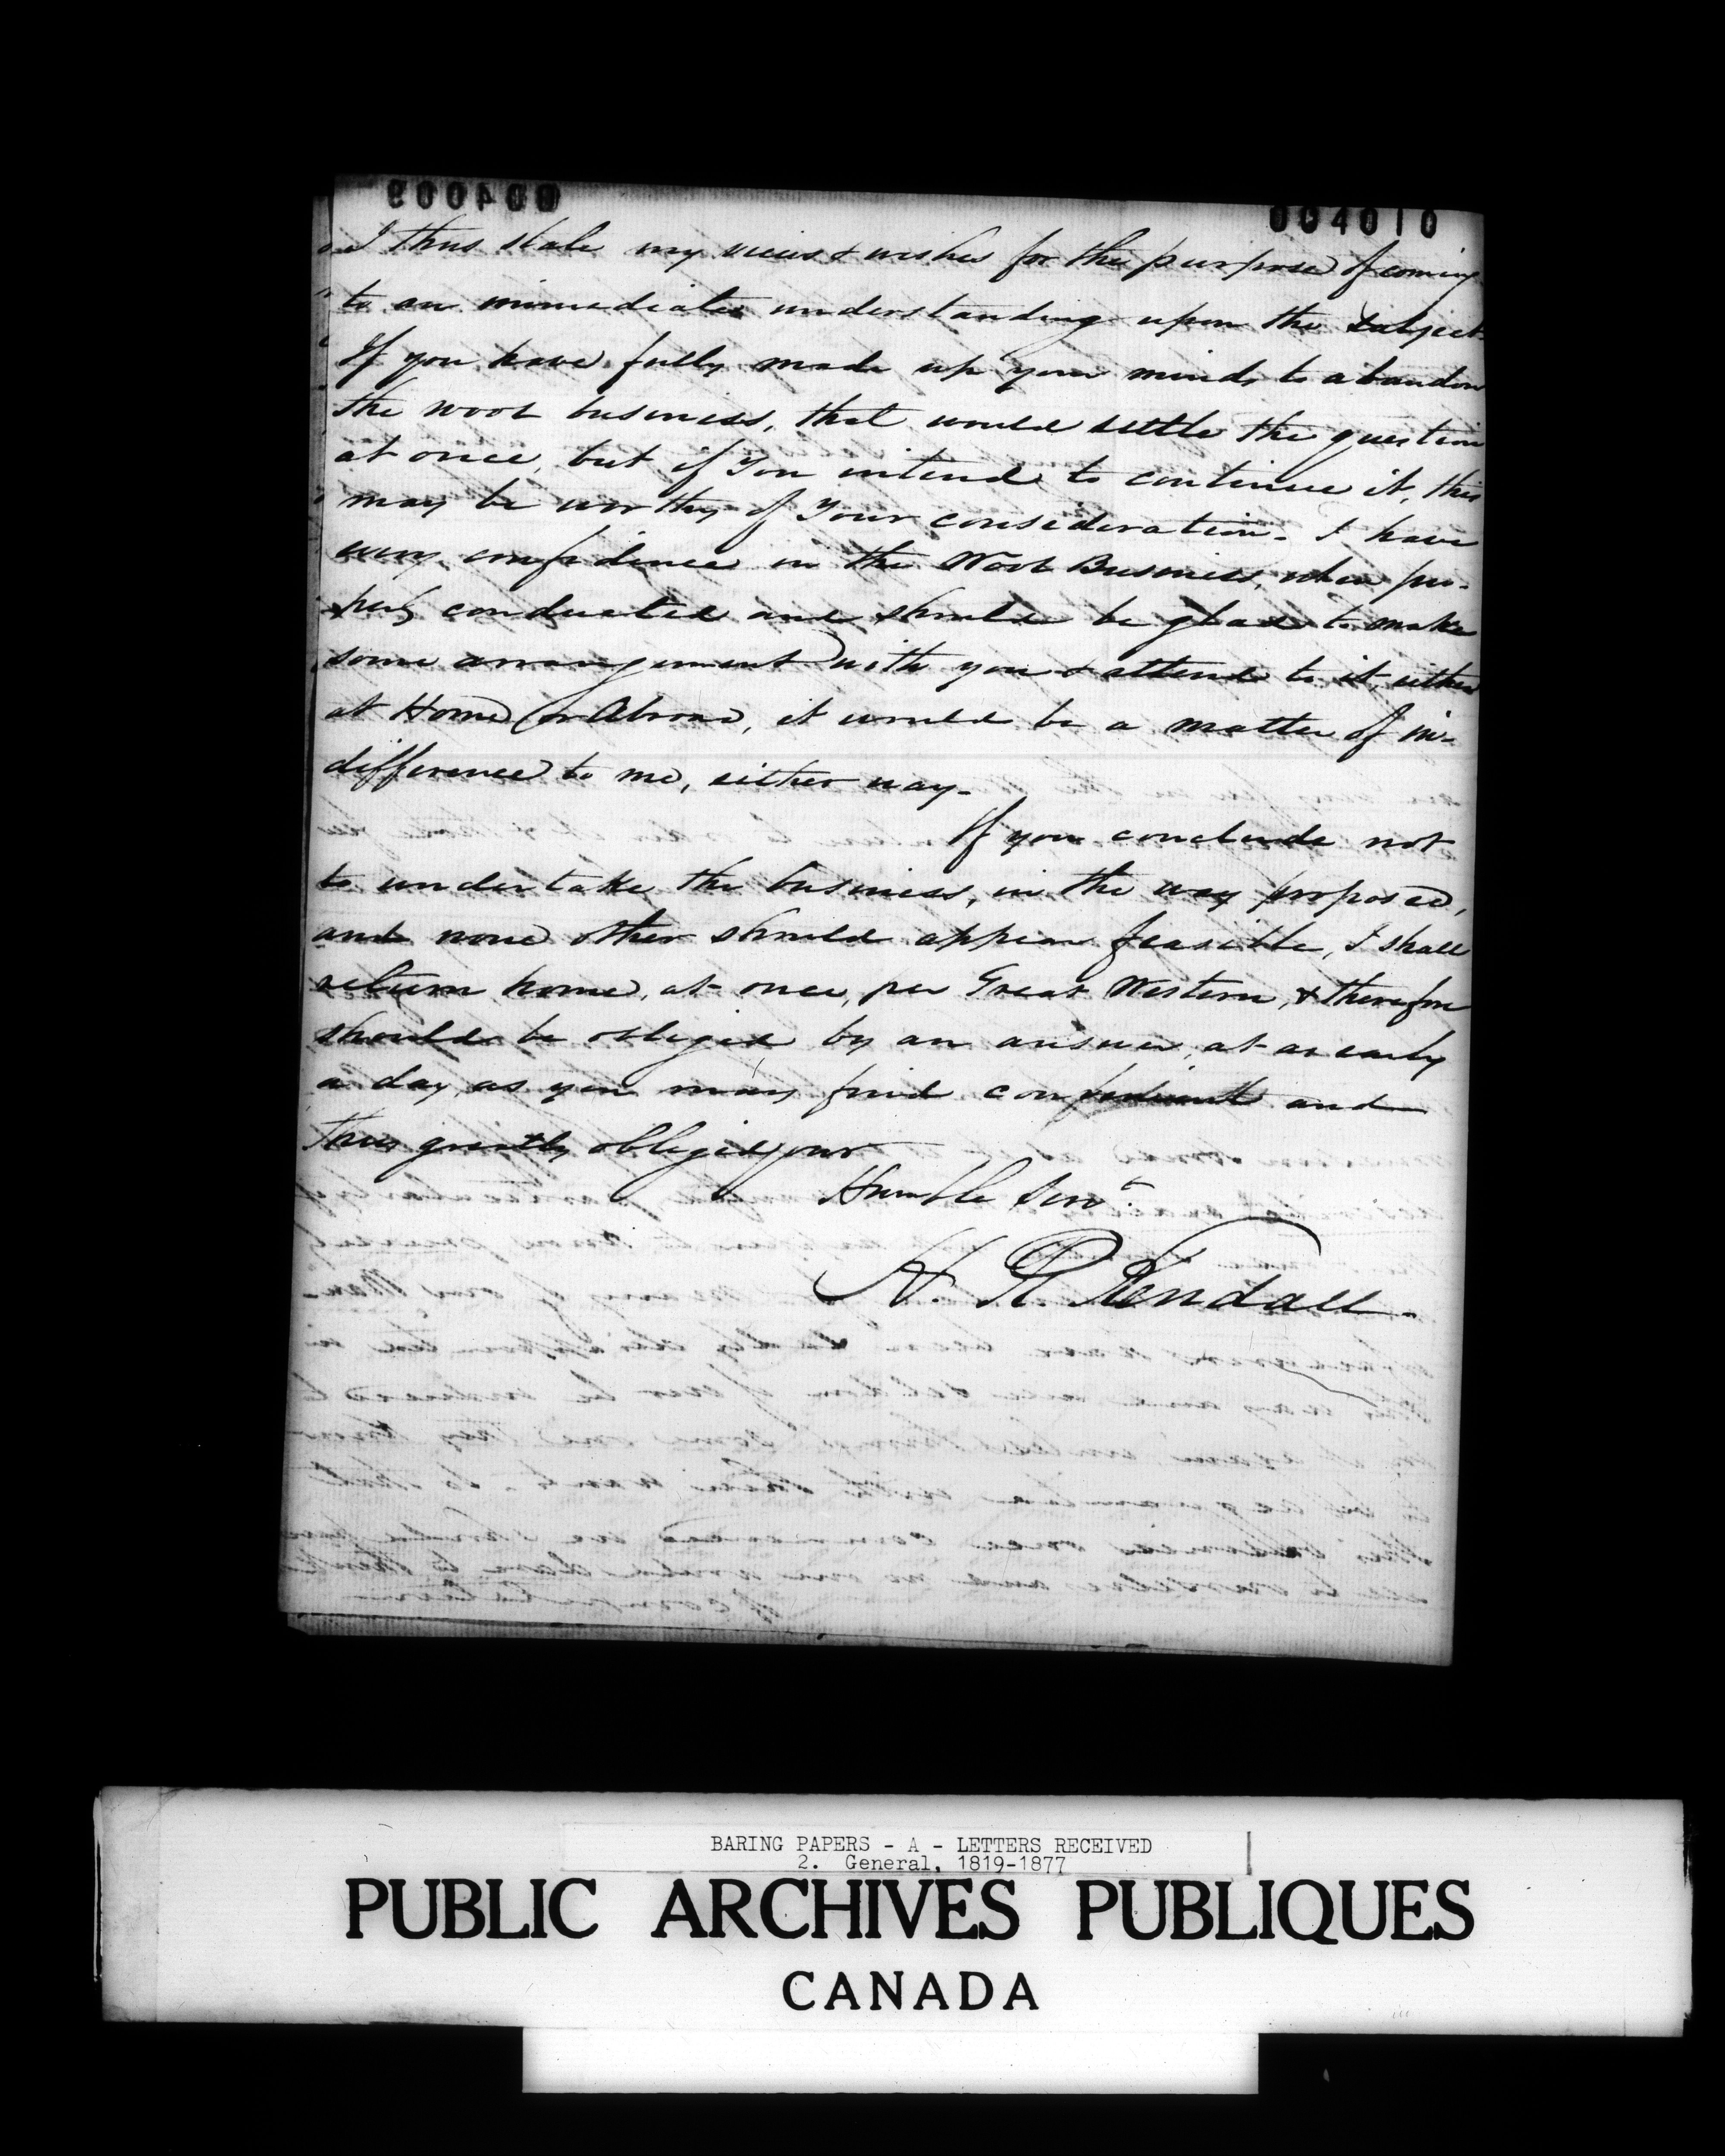 004010
I thus state my views & wishes for the purpose of coming
to an immediate understanding upon the subject.
If you have fully made up your minds to abandon
the wool business, that would settle the question
at once, but if you intend to continue it, this
may be worthy of your consideration. I have
every confidence in the Wool Business, when pro-
perly conducted and should be glad to make
some arrangement with you & attend to it, either
at Home or Abroad, it would be a matter of in-
difference to me, either way.
If you conclude not
to undertake the business, in the way proposed,
and none other should appear feasible, I shall
return home, at once, per Great Western, & therefore
should be obliged by an answer, at as early
a day, as you may find and
thus greatly obliged your
Humble Servt.
H. R. Kendall.
BARING PAPERS - A - LETTERS RECEIVED
2. General, 1819-1877
PUBLIC ARCHIVES PUBLIQUES
CANADA